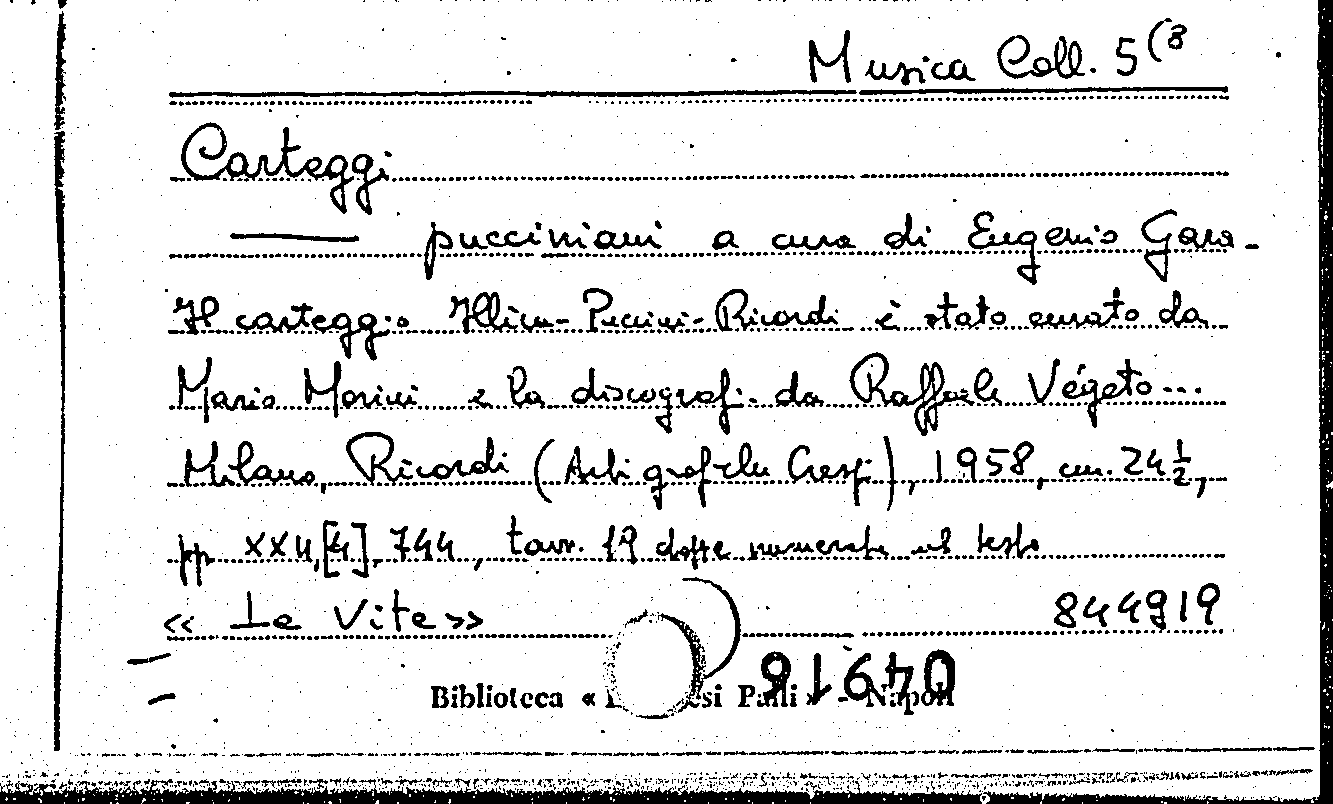 Musica Coll. 5(8
Carteggi
— pucciniani a cura di Eugenio Gara-
Il carteggio Illica-Puccini-Ricordi è stato curato da
Mario Morini e la discograf. da Raffaele Végeto...
Milano, Ricordi (Arti grafiche Crespi), 1958, cm. 24 1/2,
pp. [4], 744, tavv. 19 doppe numerate nel testo
«Le Vite» 844919
Biblioteca « esi Palli » - Napoli